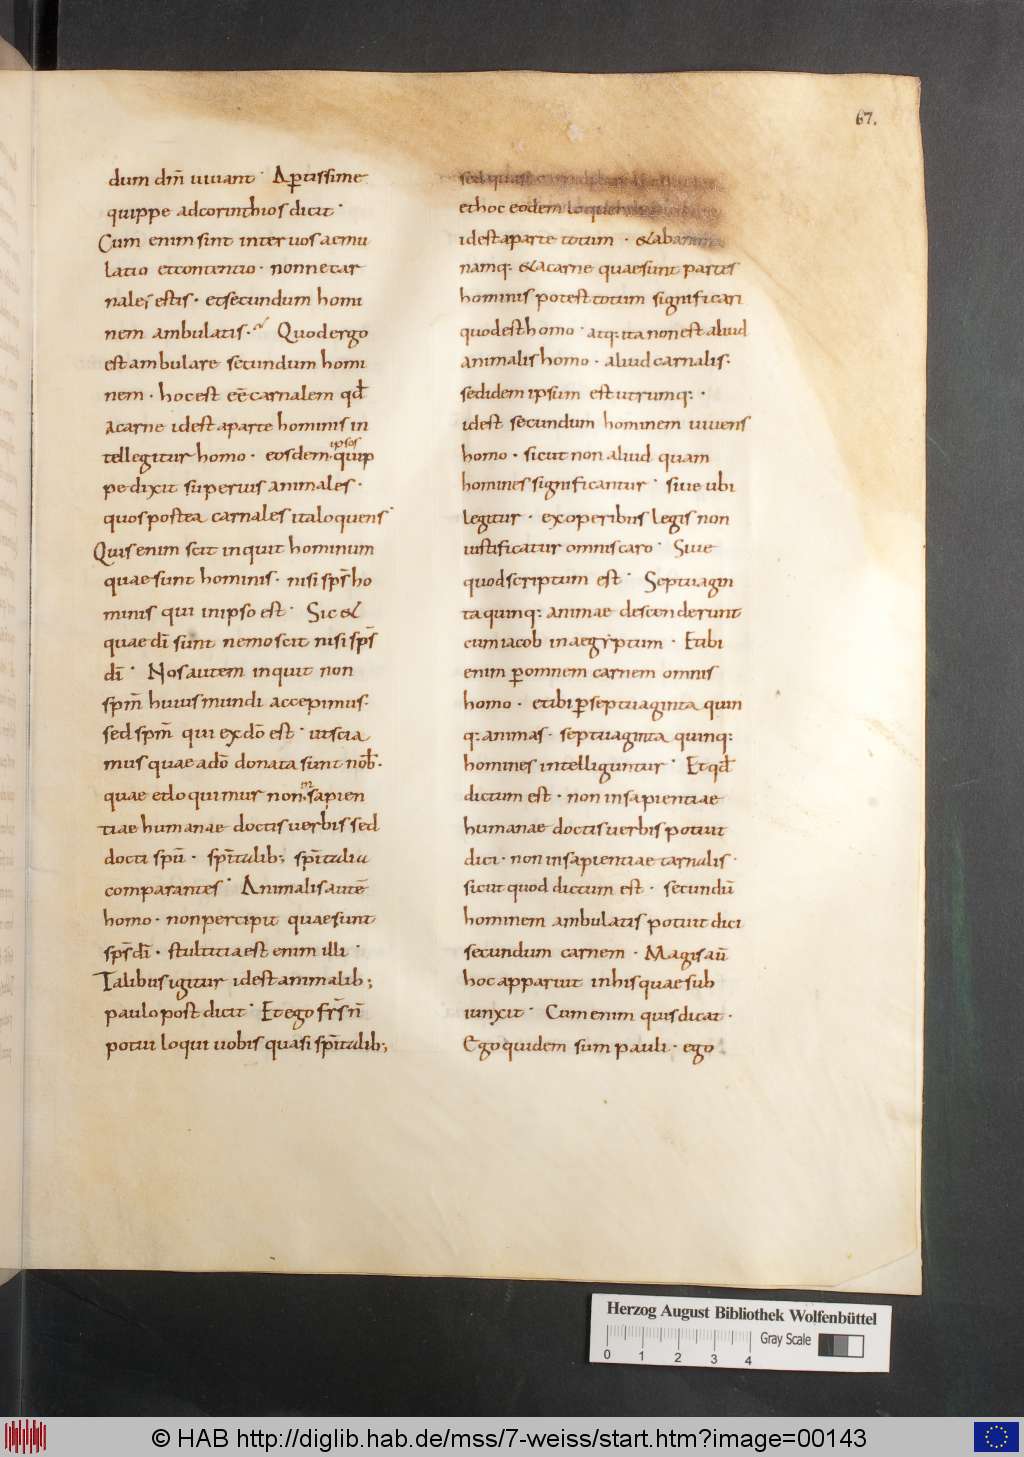 67.
dum dm̄ uiuant · Aptissime
quippe adcorinthios dicit ·
Cum enim sint inter uos aemu
latio etcontentio · nonne car
nales estis · etsecundum homi
nem ambulatis · Quodergo
est ambulare secundum homi
nem · hocest eē carnalem qđ
acarne idest aparte hominis in
tellegitur homo · eosdem ipsos quip
pe dixit superius animales ·
quos postea carnales ita loquens ·
Quis enim scit inquit hominum
quae sunt hominis · nisi sps̄ ho
minis qui inipso est · Sic &
quae dī sunt nemo scit nisi sps̄
dī · Nos autem inquit non
spm̄ huius mundi accepimus ·
sed spm̄ qui exdō est · ut scia
mus quae adō donata sunt nob̄ ·
quae etloquimur non in sapien
tiae humanae doctis uerbis sed
docti spū · sp̄italib; sp̄italia
comparantes · Animalis autē
homo · non percipit quae sunt
sps̄ dī · stultitia est enim illi ·
Talibus igitur idest animalib;
paulo post dicit · Et ego frs̄ n̄
potui loqui uobis quasi sp̄italib;
sed quasi
et hoc eodem loquendi
idest aparte totum · & abanima
namq: & acarne quae sunt partes
hominis potest totum significari
quod est homo · atq: ita non est aliud
animalis homo · aliud carnalis ·
sed idem ipsum est utrumq: ·
idest secundum hominem uiuens
homo · sicut non aliud quam
homines significantur · siue ubi
legitur · exoperibus legis non
iustificatur omnis caro · Siue
quod scriptum est · Septuagin
ta quinq: animae descenderunt
cum iacob inaegyptum · Et ibi
enim ꝑ omnem carnem omnis
homo · et ibi ꝑ septuaginta quin
q: animas · septuaginta quinq:
homines intelliguntur · Et qđ
dictum est · non insapientiae
humanae doctis uerbis potuit
dici · non insapientiae carnalis ·
sicut quod dictum est · secundū
hominem ambulatis potuit dici
secundum carnem · Magis aū
hoc apparuit inhis quae sub
iunxit · Cum enim quis dicat ·
Ego quidem sum pauli · ego
Herzog August Bibliothek Wolfenbüttel
0 1 2 3 4 Gray Scale
© HAB http://diglib.hab.de/mss/7-weiss/start.htm?image=00143